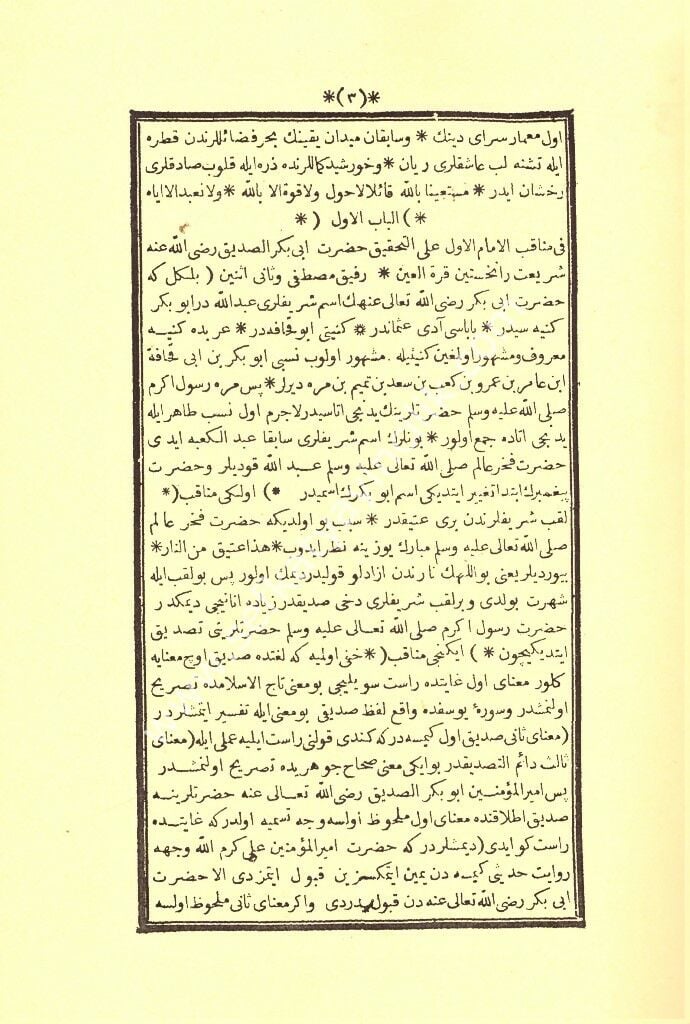 *(٣)*
اول معمار سرای دینك * وسابقان میدان یقینك بحر فضائللرندن قطره
ایله تشنه لب عاشقلری ریان * وخورشید کماللرنده ذره ایله قلوب صادقلری
رخشان ایدر * مستعینا بالله قائلا لاحول ولاقوة الا بالله * ولانعبد الا ایاه
*) الباب الاول (*
فی مناقب الامام الاول علی التحقیق حضرت ابی بکر الصدیق رضی الله عنه
شریعت را نخستین قرة العین * رفیق مصطفی وثانی اثنین ( بلمکل که
حضرت ابی بکر رضی الله تعالی عنهك اسم شریفلری عبدالله در ابو بکر
کنیه سیدر * باباسی آدی عثماندر * کنیتی ابو قحافه در * عربده کنیه
معروف ومشهور اولغین کنیتیله . مشهور اولوب نسبی ابو بکر بن ابی قحافة
ابن عامر بن عمرو بن کعب بن سعد بن تمیم بن مره دیرلر * پس مره رسول اکرم
صلی الله علیه وسلم حضرتلرینك یدنجی اتاسیدر لاجرم اول نسب طاهر ایله
یدنجی اتاده جمع اولور * بونلرك اسم شریفلری سابقا عبد الکعبه ایدی
حضرت فخر عالم صلی الله تعالی علیه وسلم عبد الله قودیلر وحضرت
پیغمبرك ابتدا تغییر ایتدیکی اسم ابو بکرك اسمیدر *) اولکی مناقب (*
لقب شریفلرندن بری عتیقدر * سبب بو اولدیکه حضرت فخر عالم
صلی الله تعالی علیه وسلم مبارك یوزینه نظر ایدوب * هذا عتیق من النار *
بیوردیلر یعنی بو اللهك نارندن ازادلو قولیدر دیمك اولور پس بو لقب ایله
شهرت بولدی وبر لقب شریفلری دخی صدیقدر زیاده انانیجی دیمکدر
حضرت رسول اکرم صلی الله تعالی علیه وسلم حضرتلرینی تصدیق
ایتدیکیچون *) ایکنجی مناقب (* خفی اولمیه که لغتده صدیق اوچ معنایه
کلور معنای اول غایتده راست سویلیجی بو معنی تاج الاسلامده تصریح
اولنمشدر وسورۀ یوسفده واقع لفظ صدیق بو معنی ایله تفسیر ایتمشلردر
(معنای ثانی صدیق اول کیمسه درکه کندی قولنی راست ایلیه عملی ایله (معنای
ثالث دائم التصدیقدر بو ایکی معنی صحاح جوهریده تصریح اولنمشدر
پس امیر المؤمنین ابو بکر الصدیق رضی الله تعالی عنه حضرتلرینه
صدیق اطلاقنده معنای اول ملحوظ اولسه وجه تسمیه اولدرکه غایتده
راست کو ایدی (دیمشلردرکه حضرت امیر المؤمنین علی کرم الله وجهه
روایت حدیثی کیمسه دن یمین ایتمکسزین قبول ایتمزدی الا حضرت
ابی بکر رضی الله تعالی عنه دن قبول ایدردی واکر معنای ثانی ملحوظ اولسه